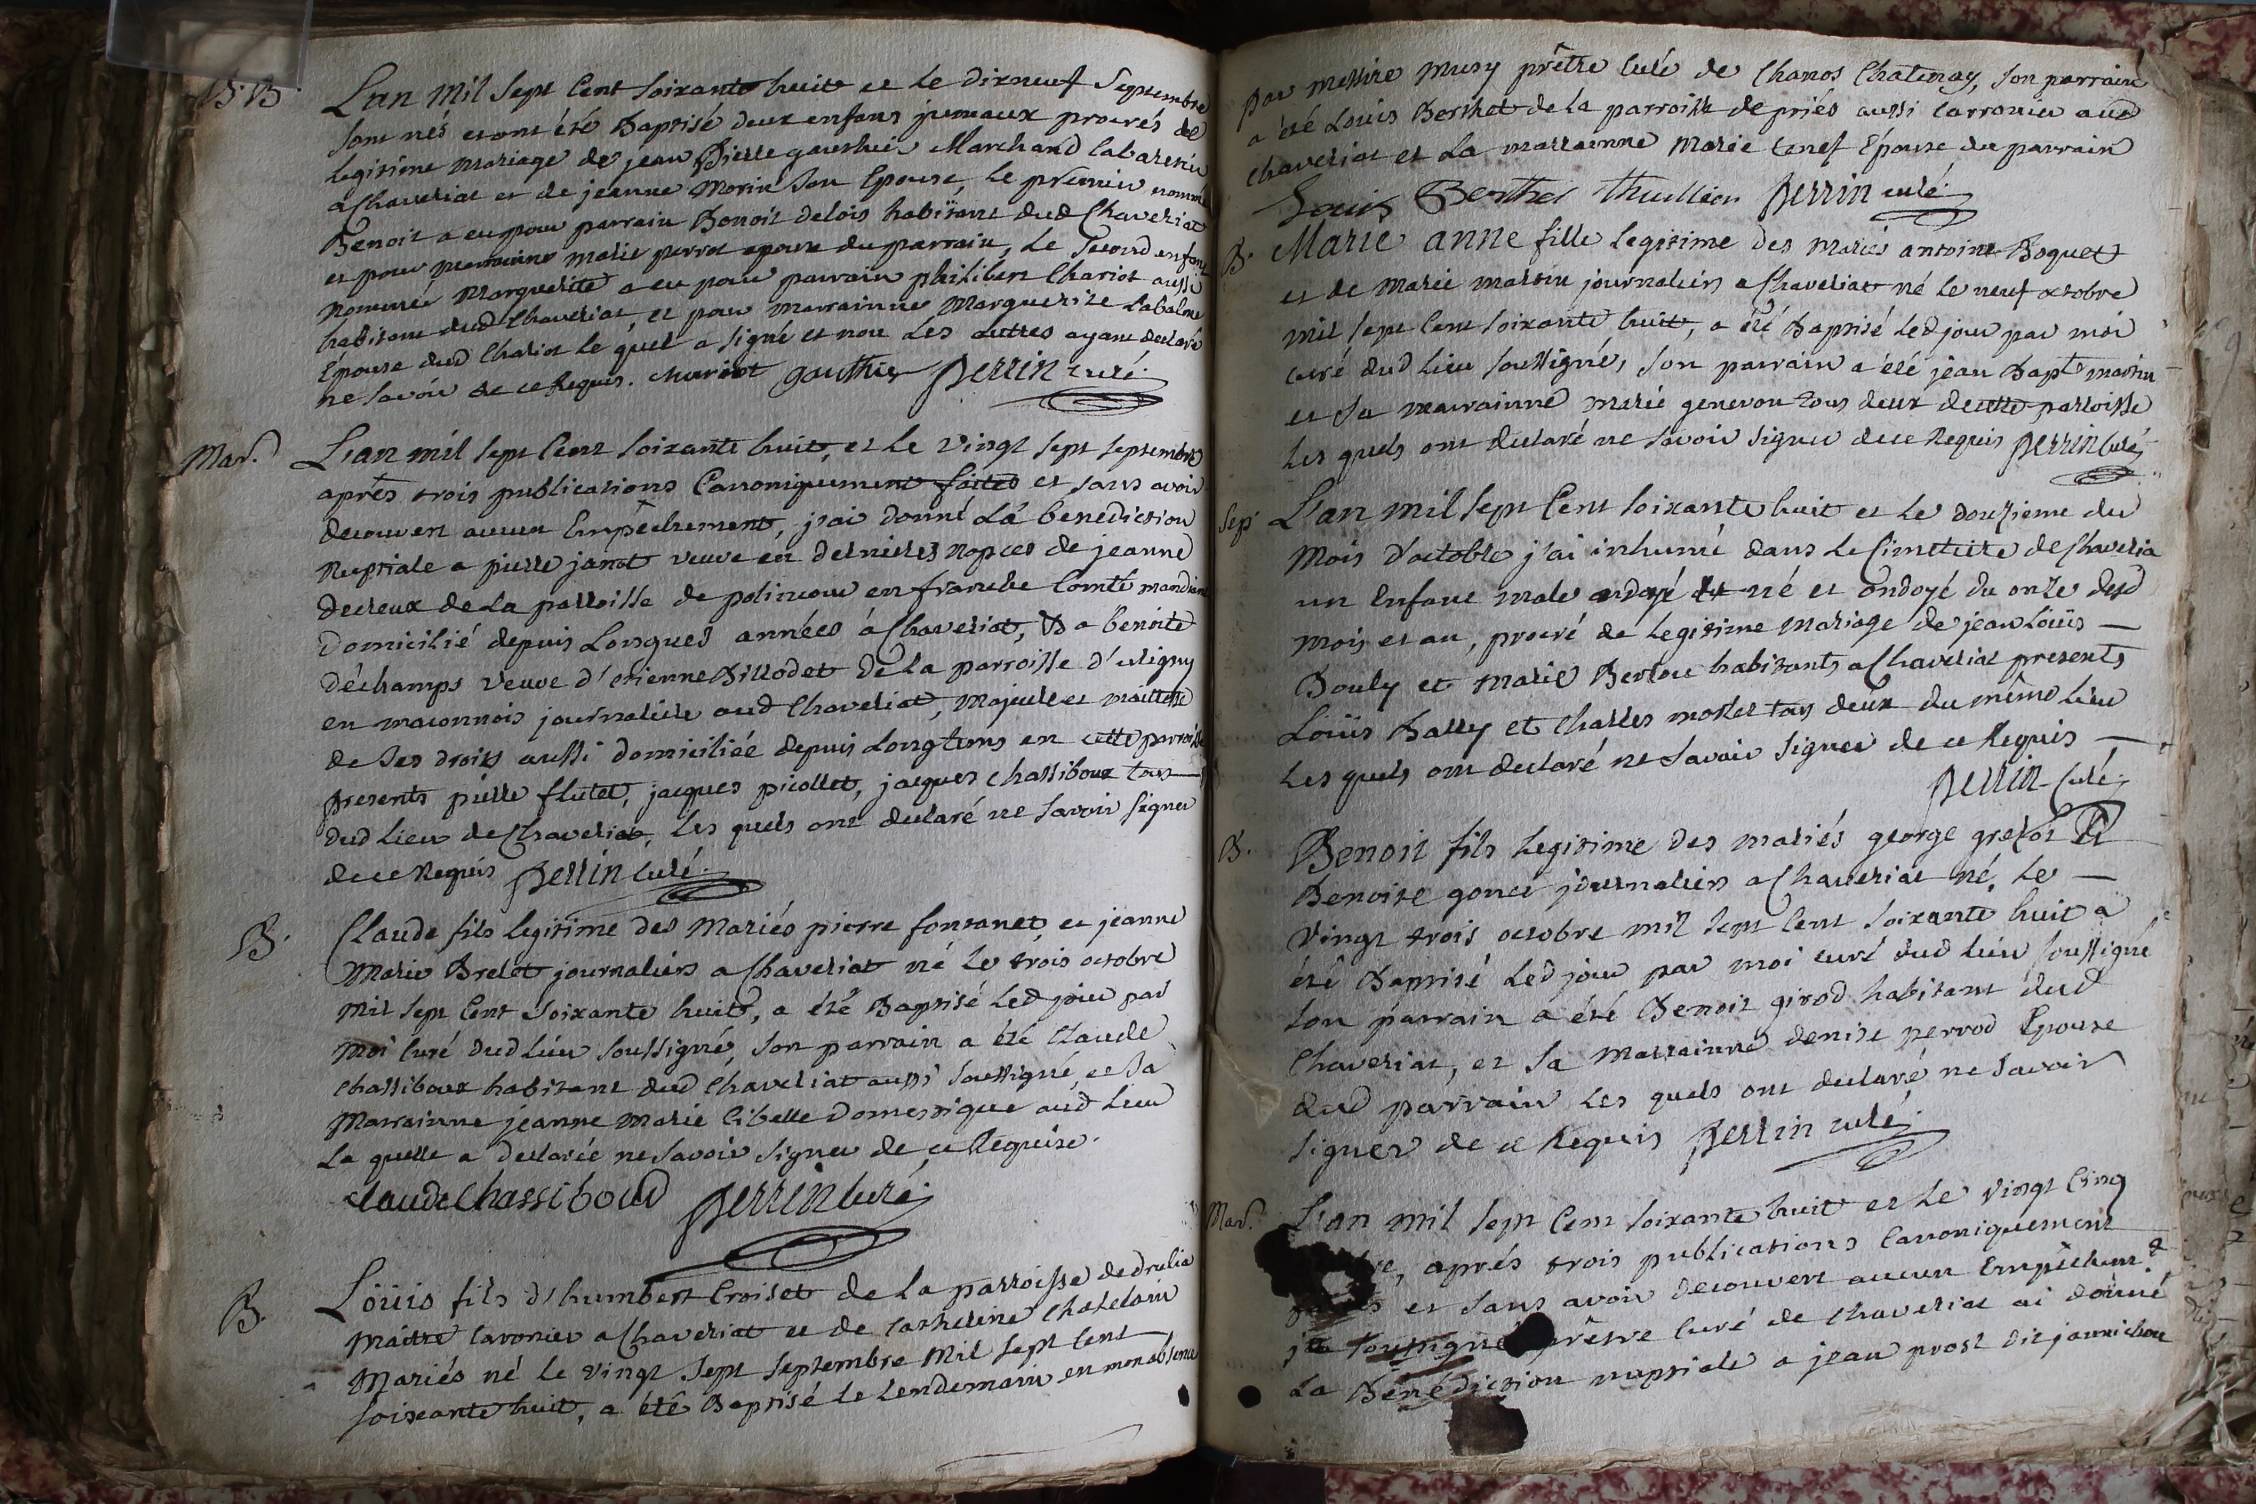 B. B.
L'an mil sept Cent soixante huit et le dixneuf septembre
sont nés et ont été Baptisé deux enfans jumeaux procrés de
legitime mariage de jean Pierre gauthier Marchand Cabaretier
a Chaveriat et de jeanne Morin son Epouse, le premier nommé
Benoit a eu pour parrain Benoit delois habitant dud Chaveriat
et pour marrainne marie perrot epouse du parrain, Le second enfant
nommée Marguerite a eu pour parrain philibert Chariot aussi
habitant dud Chaveriat, et pour marrainne Marguerite Labalme
Épouse dud Chariot le quel a signé et non Les autres ayant declaré
ne savoir de ce Requis. chariot gauthier perrin curé
Mar.
L'an mil sept Cent soixante huit, et Le vingt sept septembre
aprés trois publications Canoniquement faites et sans avoir
decouvert aucun Empêchement, j'ai donné La benediction
Nuptiale a pierre janot veuve en dernieres Nopces de jeanne
decreux de La parroisse de polincour en franche Comté
Domicilié depuis Longues années à Chaveriat, & a benoite
déchamps veuve d'etienne Billodet de La parroisse d'
en maconnois journaliere aud Chaveriat, majeure et maitresse
de ses droits aussi domiciliée depuis Longtems en cette parroisse
presents pierre flutet, jacques picollet, jacques chassiboux tous
dud lieu de Chaveriat, Les quels ont declaré ne savoir signer
de ce Requis perrin Curé
B.
Claude fils legitime des Mariés pierre fontanet et jeanne
Marie Brelet journaliers a Chaveriat né Le trois octobre
mil sept Cent soixante huit, a été Baptisé Led jour par
moi Curé dud lieu soussigné, son parrain a été Claude
Chassiboux habitant dud Chaveriat aussi soussigné, et sa
Marrainne jeanne Marie Cibelle domestique aud Lieu
La quelle a declarée ne savoir signer de ce Requise.
claude Chassiboud perrin Curé
B.
Loüis fils d'humbert Croiset de La parroisse de druilia
maitre Carronier a Chaveriat et de Catherine Chatelain
Mariés né le vingt sept septembre Mil sept Cent
soixante huit, a été Baptisé Le Lendemain en mon absence
par messire Musy prêtre Curé de Chanos Chatenay, son parrain
a été Louis Berthet de La parroisse de priés aussi Carronier aud
Chaveriat et La marrainne Marie tenet Épouse du parrain
Louis Berthet thuillier perrin curé
B.
Marie anne fille Legitime des Mariés antoine Boquet
et de Marie martin journaliers a Chaveriat né Le neuf octobre
mil sept Cent soixante huit, a été Baptisé Led jour par moi
curé dud Lieu soussigné, son parrain a été jean Bapt. martin
et sa marrainne marie genevon tous deux de cette parroisse
Les quels ont declaré ne savoir signer de ce Requis perrin Curé
Sep.
L'an mil sept Cent soixante huit et Le douzieme du
Mois d'octobre j'ai inhumé dans Le Cimetiere de Chaveria
un Enfant male né et ondoyé du onze dud
mois et an, procré de Legitime mariage de jean Loüis
Bouly et Marie Berlou habitants a Chaveriat presents
Loüis Bally et Charles tous deux du même Lieu
Les quels ont declaré ne savoir signer de ce Requis
perrin Curé
B.
Benoit fils legitime des mariés george grelot et
Benoite gonce journaliers a Chaveriat né Le
vingt trois octobre mil sept Cent soixante huit a
été Baptisé Led jour par moi curé dud Lieu soussigné
son parrain a été Benoit girod habitant dud
Chaveriat, et sa Marrainne denise perrod Epouse
dud parrain Les quels ont declaré ne savoir
signer de ce Requis perrin curé
Mar.
L'an mil sept Cent soixante huit et Le vingt Cinq
aprés trois publications Canoniquement
et sans avoir decouvert aucun Empêchem.t
je soussigné prêtre Curé de Chaveriat ai donné
La Bénédiction nuptiale a jean prost dit jannichon